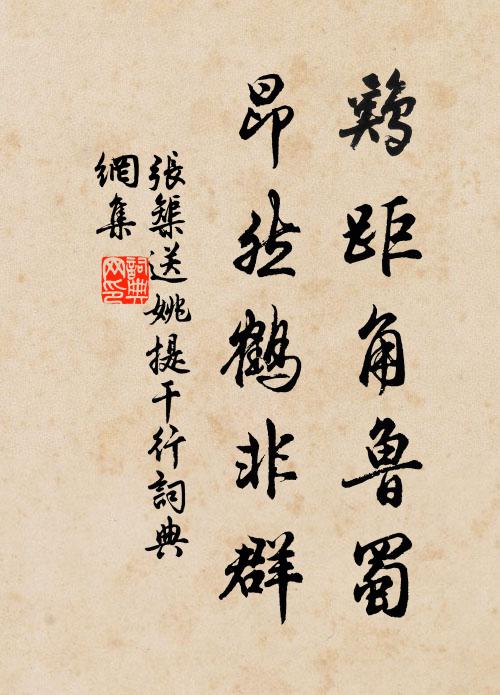 鷄距角魯蜀
昂然鶴非群
張榘送姚提干行詞典
網集
詞典網印